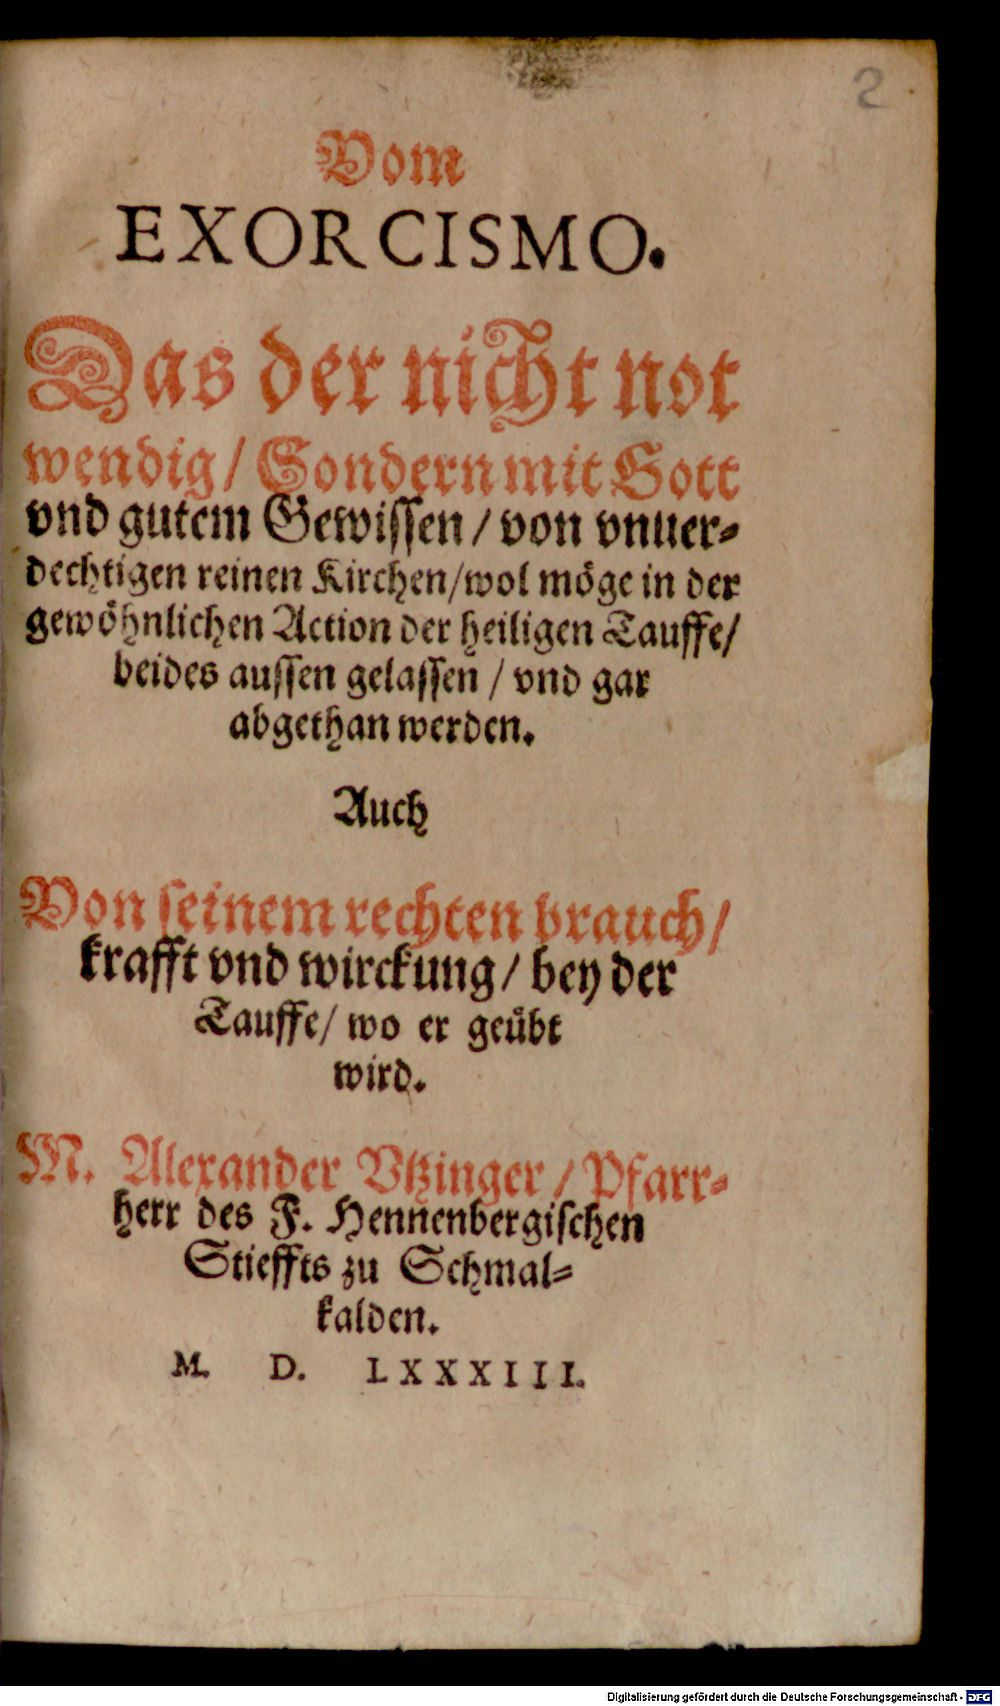 2
Vom
EXORCISMO.
Das der nicht not
wendig/ Sondern mit Gott
vnd gutem Gewissen/ von vnuer-
dechtigen reinen Kirchen/wol möge in der
gewöhnlichen Action der heiligen Tauffe/
beides aussen gelassen/ vnd gar
abgethan werden.
Auch
Von seinem rechten brauch/
krafft vnd wirckung/ bey der
Tauffe/ wo er geübt
wird.
M. Alexander Vtzinger/ Pfarr-
herr des F. Hennenbergischen
Stieffts zu Schmal-
kalden.
M. D. LXXXIII.
Digitalisierung gefördert durch die Deutsche Forschungsgemeinschaft - DFG